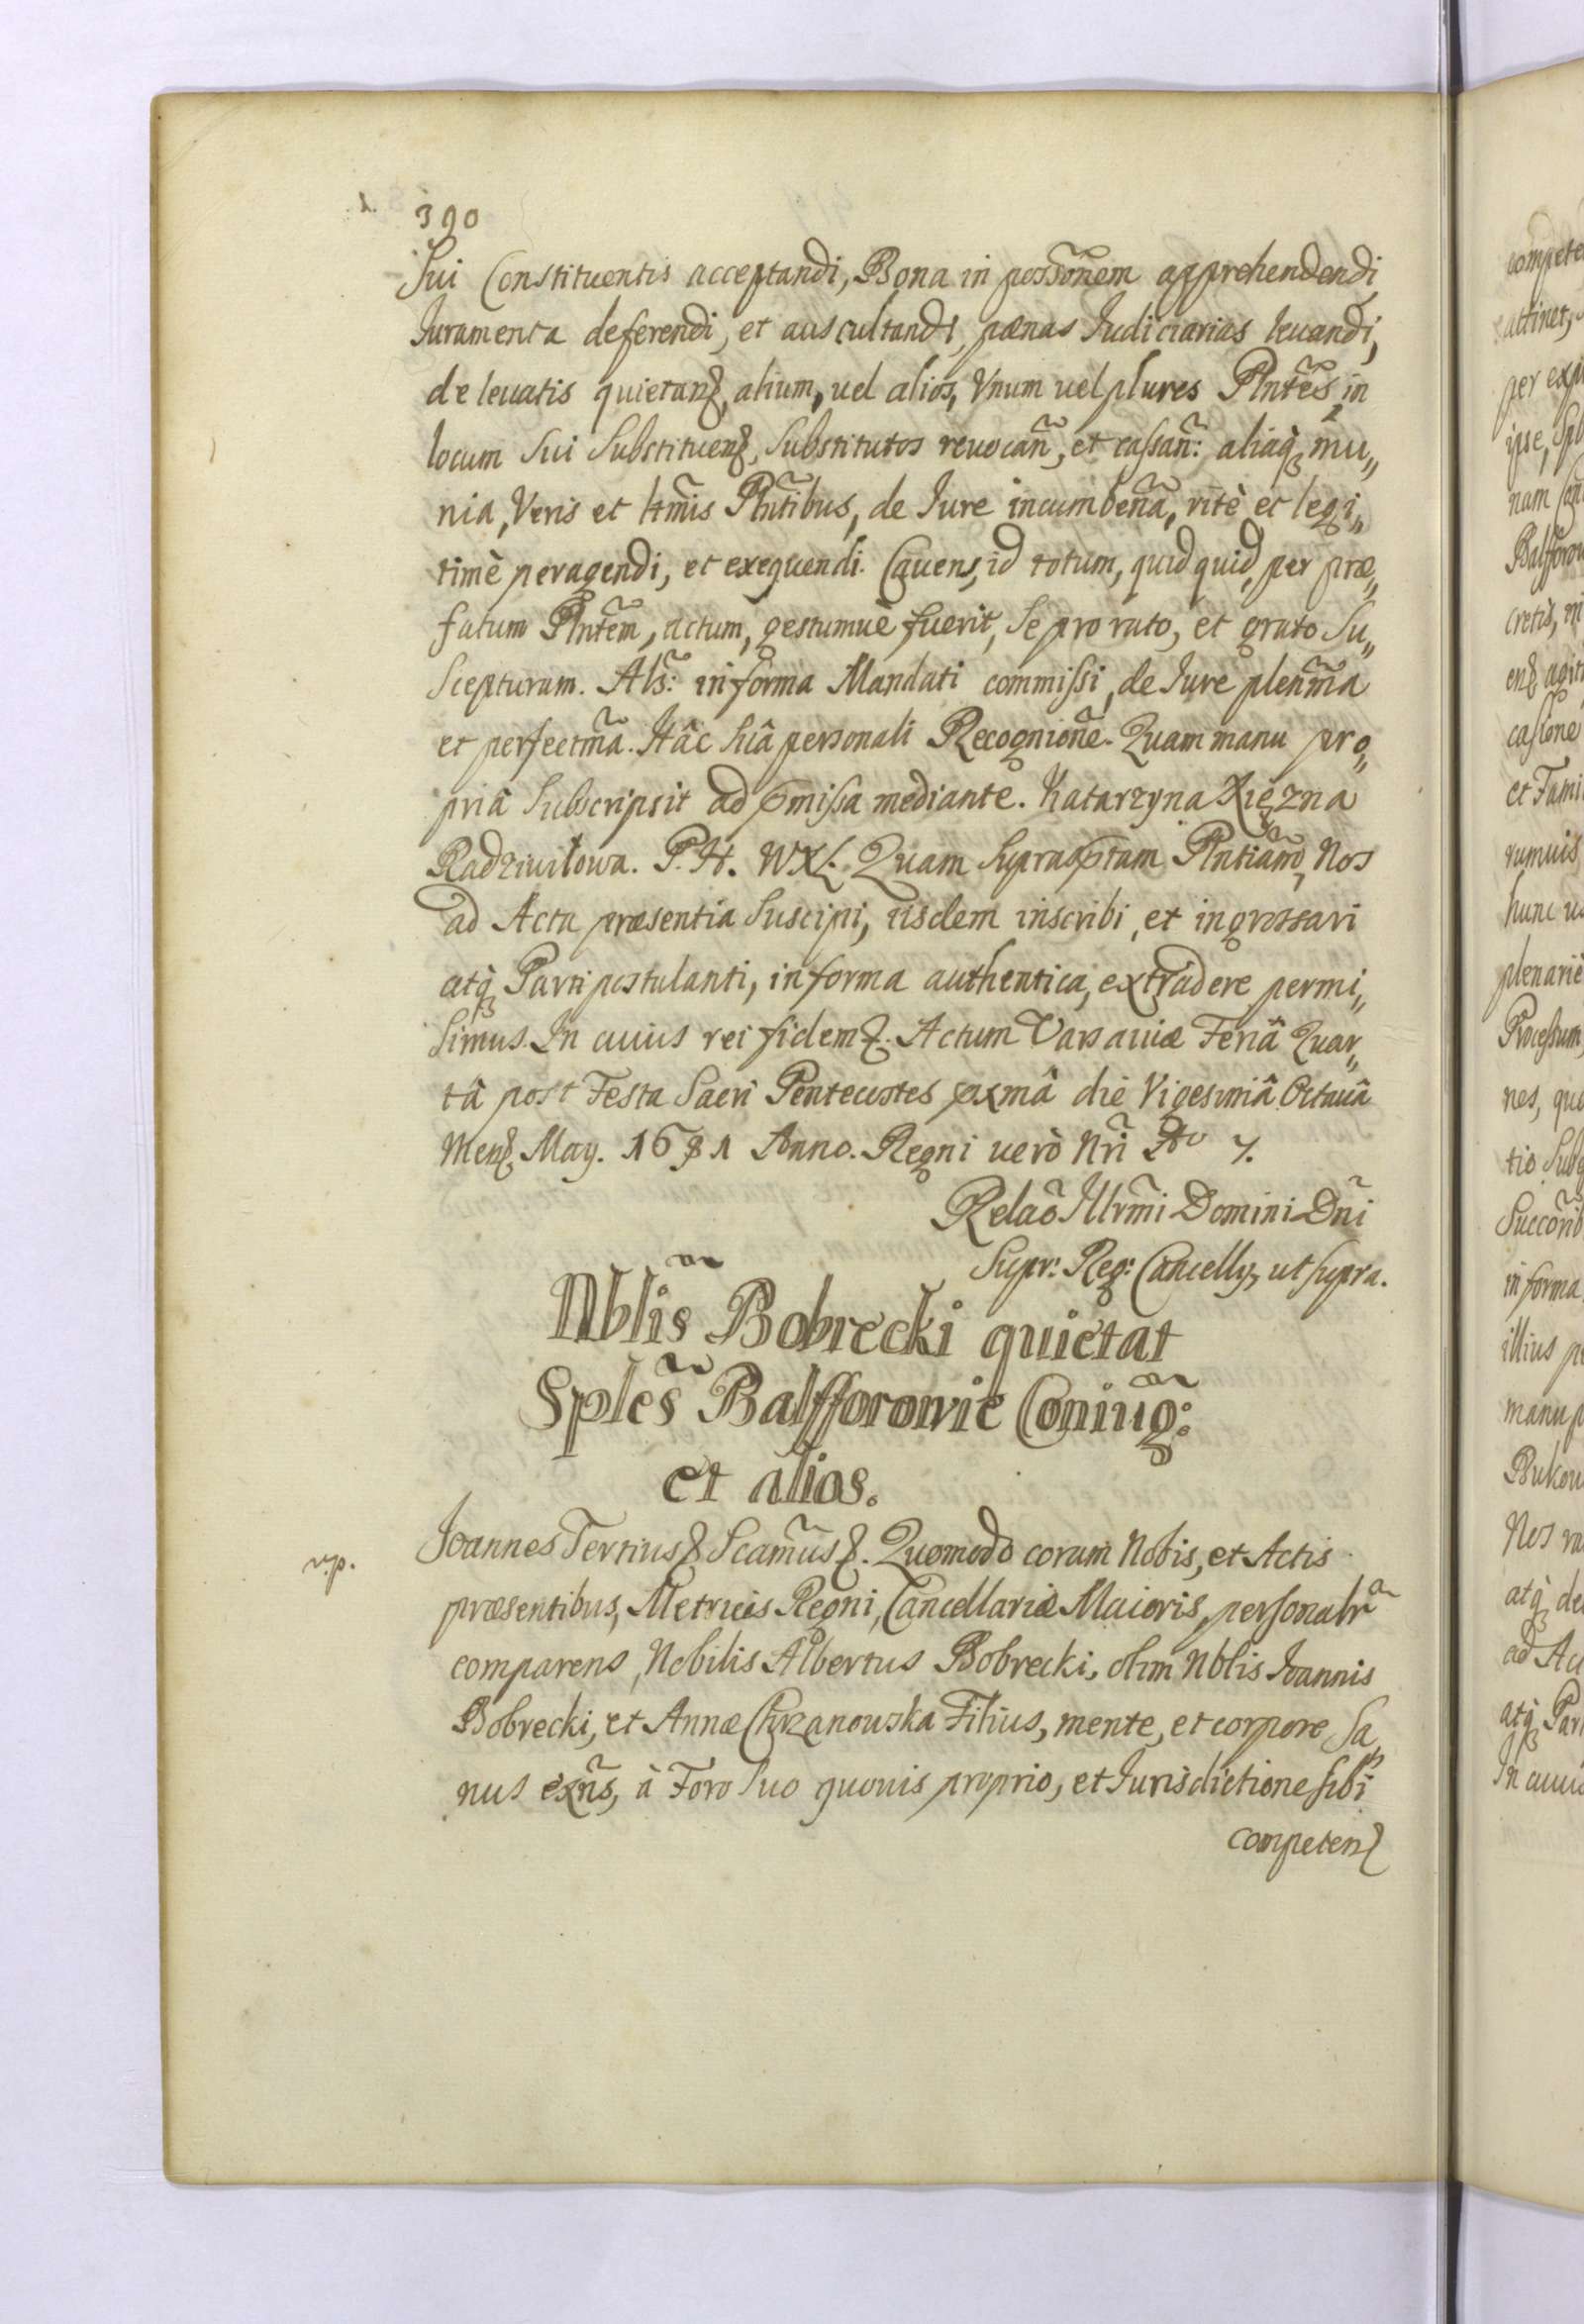 390
Sui Constituentis acceptandi, Bona in possonem apprehendendi,
Iuramenta deferendi, et auscultandi, pœnas Iudiciarias leuandi,
de leuatis quietanꝫ, alium, uel alios, Vnum uel plures Plntes, in
locum Sui Substituenꝫ, Substitutos reuocan̄, et cassan̄: aliaqꝫ mu„
nia, Veris et ltm̄is Plntibus, de Iure incumben̄a, ritè et legi„
timè peragendi, et exequendi. Cauens, id totum, quidquid, per præ„
fatum Plntem, actum, gestumuè fuerit, Se pro rato, et grato Su„
Scepturum. Als̃: in forma Mandati commissi, de Iure plenm̃a
et perfectm̃a. Hâc Suâ personali Recognione. Quam manu pro„
priâ Subscripsit ad pmissa mediante. Katarzyna Xiężna
Radziwiłowa. P. H. WXL. Quam Suprasptam Plntiam, Nos
ad Acta præsentia Suscipi, iisdem inscribi, et ingrossari
atqꝫ Parti postulanti, in forma authentica, extradere permi„
Simus. In cuius rei fidemꝫ. Actum Varsauiæ Feriâ Quar„
tâ post Festa Sacri Pentecostes pxmâ die Vigesimâ Octauâ
Menꝫ May. 1681 Anno. Regni uerò Nri Ao 7.
Relao Illrmi Domini Dni
Supr: Reg: Cancellÿ, ut supra.
Nblis Bobrecki quietat
Sples Balfforowie Coniug:
et alios.
v.p.
Joannes Tertiusꝫ Scamusꝫ. Quomodo coram Nobis, et Actis
præsentibus, Metrices Regni, Cancellariæ Maioris, personalr
comparens, Nobilis Albertus Bobrecki, olim Nblis Joannis
Bobrecki, et Annæ Chrzanowska Filius, mente, et corpore Sa„
nus exn̄s, à Foro Suo quouis proprio, et Iurisdictione sibi
competenꝫ